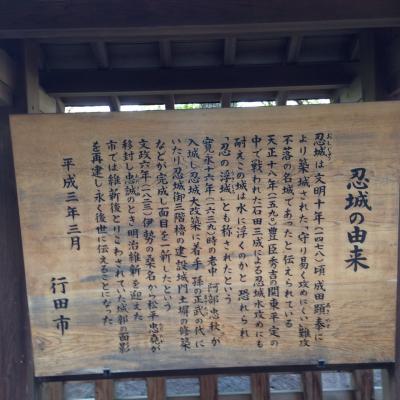 忍城の由来
おしじょう
忍城は文明十年(一四七八)頃 成田顕泰に
より築城された、守り易く攻めにくい難攻
不落の名城であったと伝えられている
天正十八年(一五九〇)豊臣秀吉の関東平定の
中で戦われた石田三成による忍城水攻めにも
耐え この城は水に浮くのかと 恐れられ
「忍の浮城」とも称されたという
寛永十六年(一六三九)時の老中 阿部忠秋が
入城し忍城大改築に着手 孫の正武の代に
いたり忍城御三階櫓の建設 城門土塀の修築
などが完成し面目を一新したという
文政六年(一八二三)伊勢の桑名から松平忠堯が
移封し忠誠のとき明治維新を迎えた
市では維新後とりこわされていた城郭の面影
を再建し永く後世に伝えることになった
平成三年三月
行田市